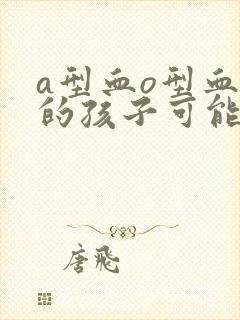 a型血o型血
的孩子可能
唐飛